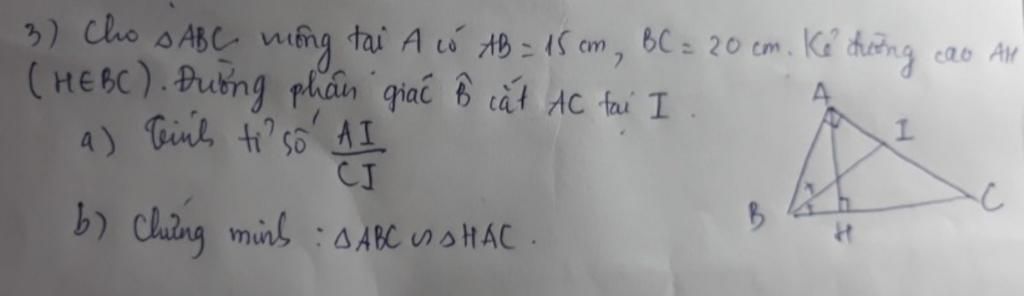 3) Cho △ABC vuông tại A có AB = 15 cm, BC = 20 cm. Kẻ đường cao AH
(H∈BC). Đường phân giác B̂ cắt AC tại I.
a) Tính tỉ số AI/CI
b) Chứng minh : △ABC ∽ △HAC.
A
I
B
H
C